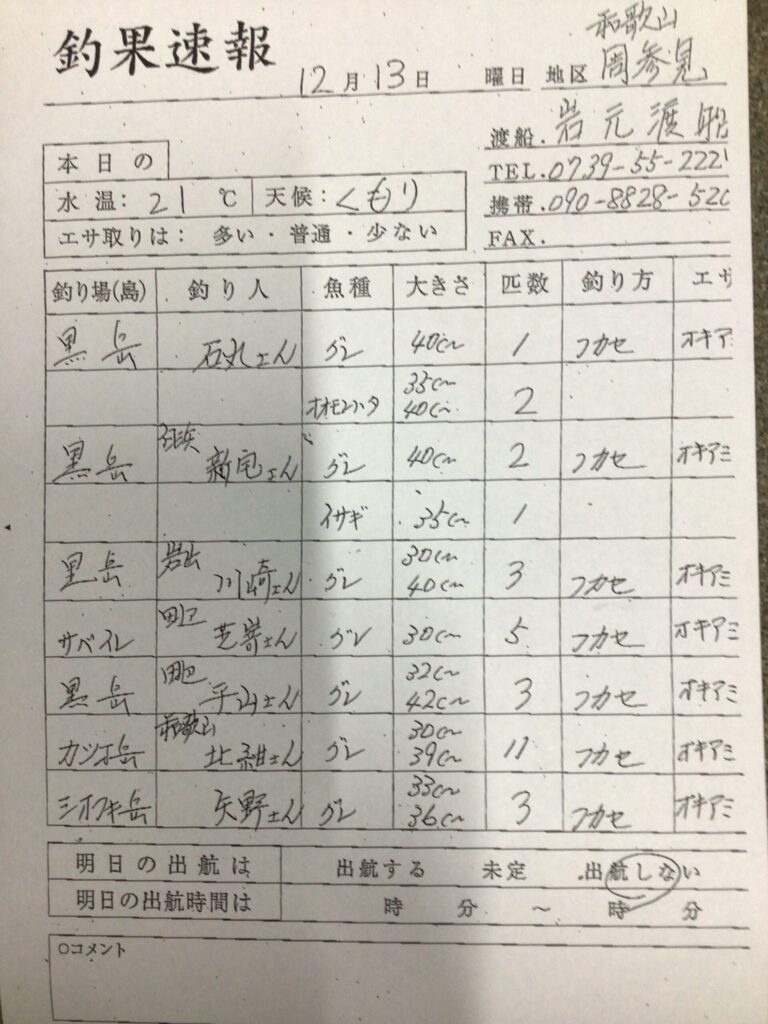 和歌山
釣果速報 12月13日 曜日 地区 周参見
渡船. 岩元渡船
本日の TEL. 0739-55-222
水温: 21 ℃ 天候: くもり 携帯. 090-8828-520
エサ取りは: 多い・普通・少ない FAX.
釣り場(島) 釣り人 魚種 大きさ 匹数 釣り方 エサ
黒岳 石丸さん グレ 40cm 1 フカセ オキア
35cm
オオモンハタ 40cm 2
黒岳 新宅さん グレ 40cm 2 フカセ オキアミ
イサギ 35cm 1
岩出 30cm
黒岳 川崎さん グレ 40cm 3 フカセ オキアミ
田辺
サベイル 芝嵜さん グレ 30cm 5 フカセ オキアミ
田辺 32cm
黒岳 平山さん グレ 42cm 3 フカセ オキアミ
和歌山 30cm
カツオ岳 北紺さん グレ 39cm 11 フカセ オキアミ
33cm
シオフキ岳 矢野さん グレ 36cm 3 フカセ オキアミ
明日の出航は 出航する 未定 .出航しない
明日の出航時間は 時 分 ～ 時 分
○コメント